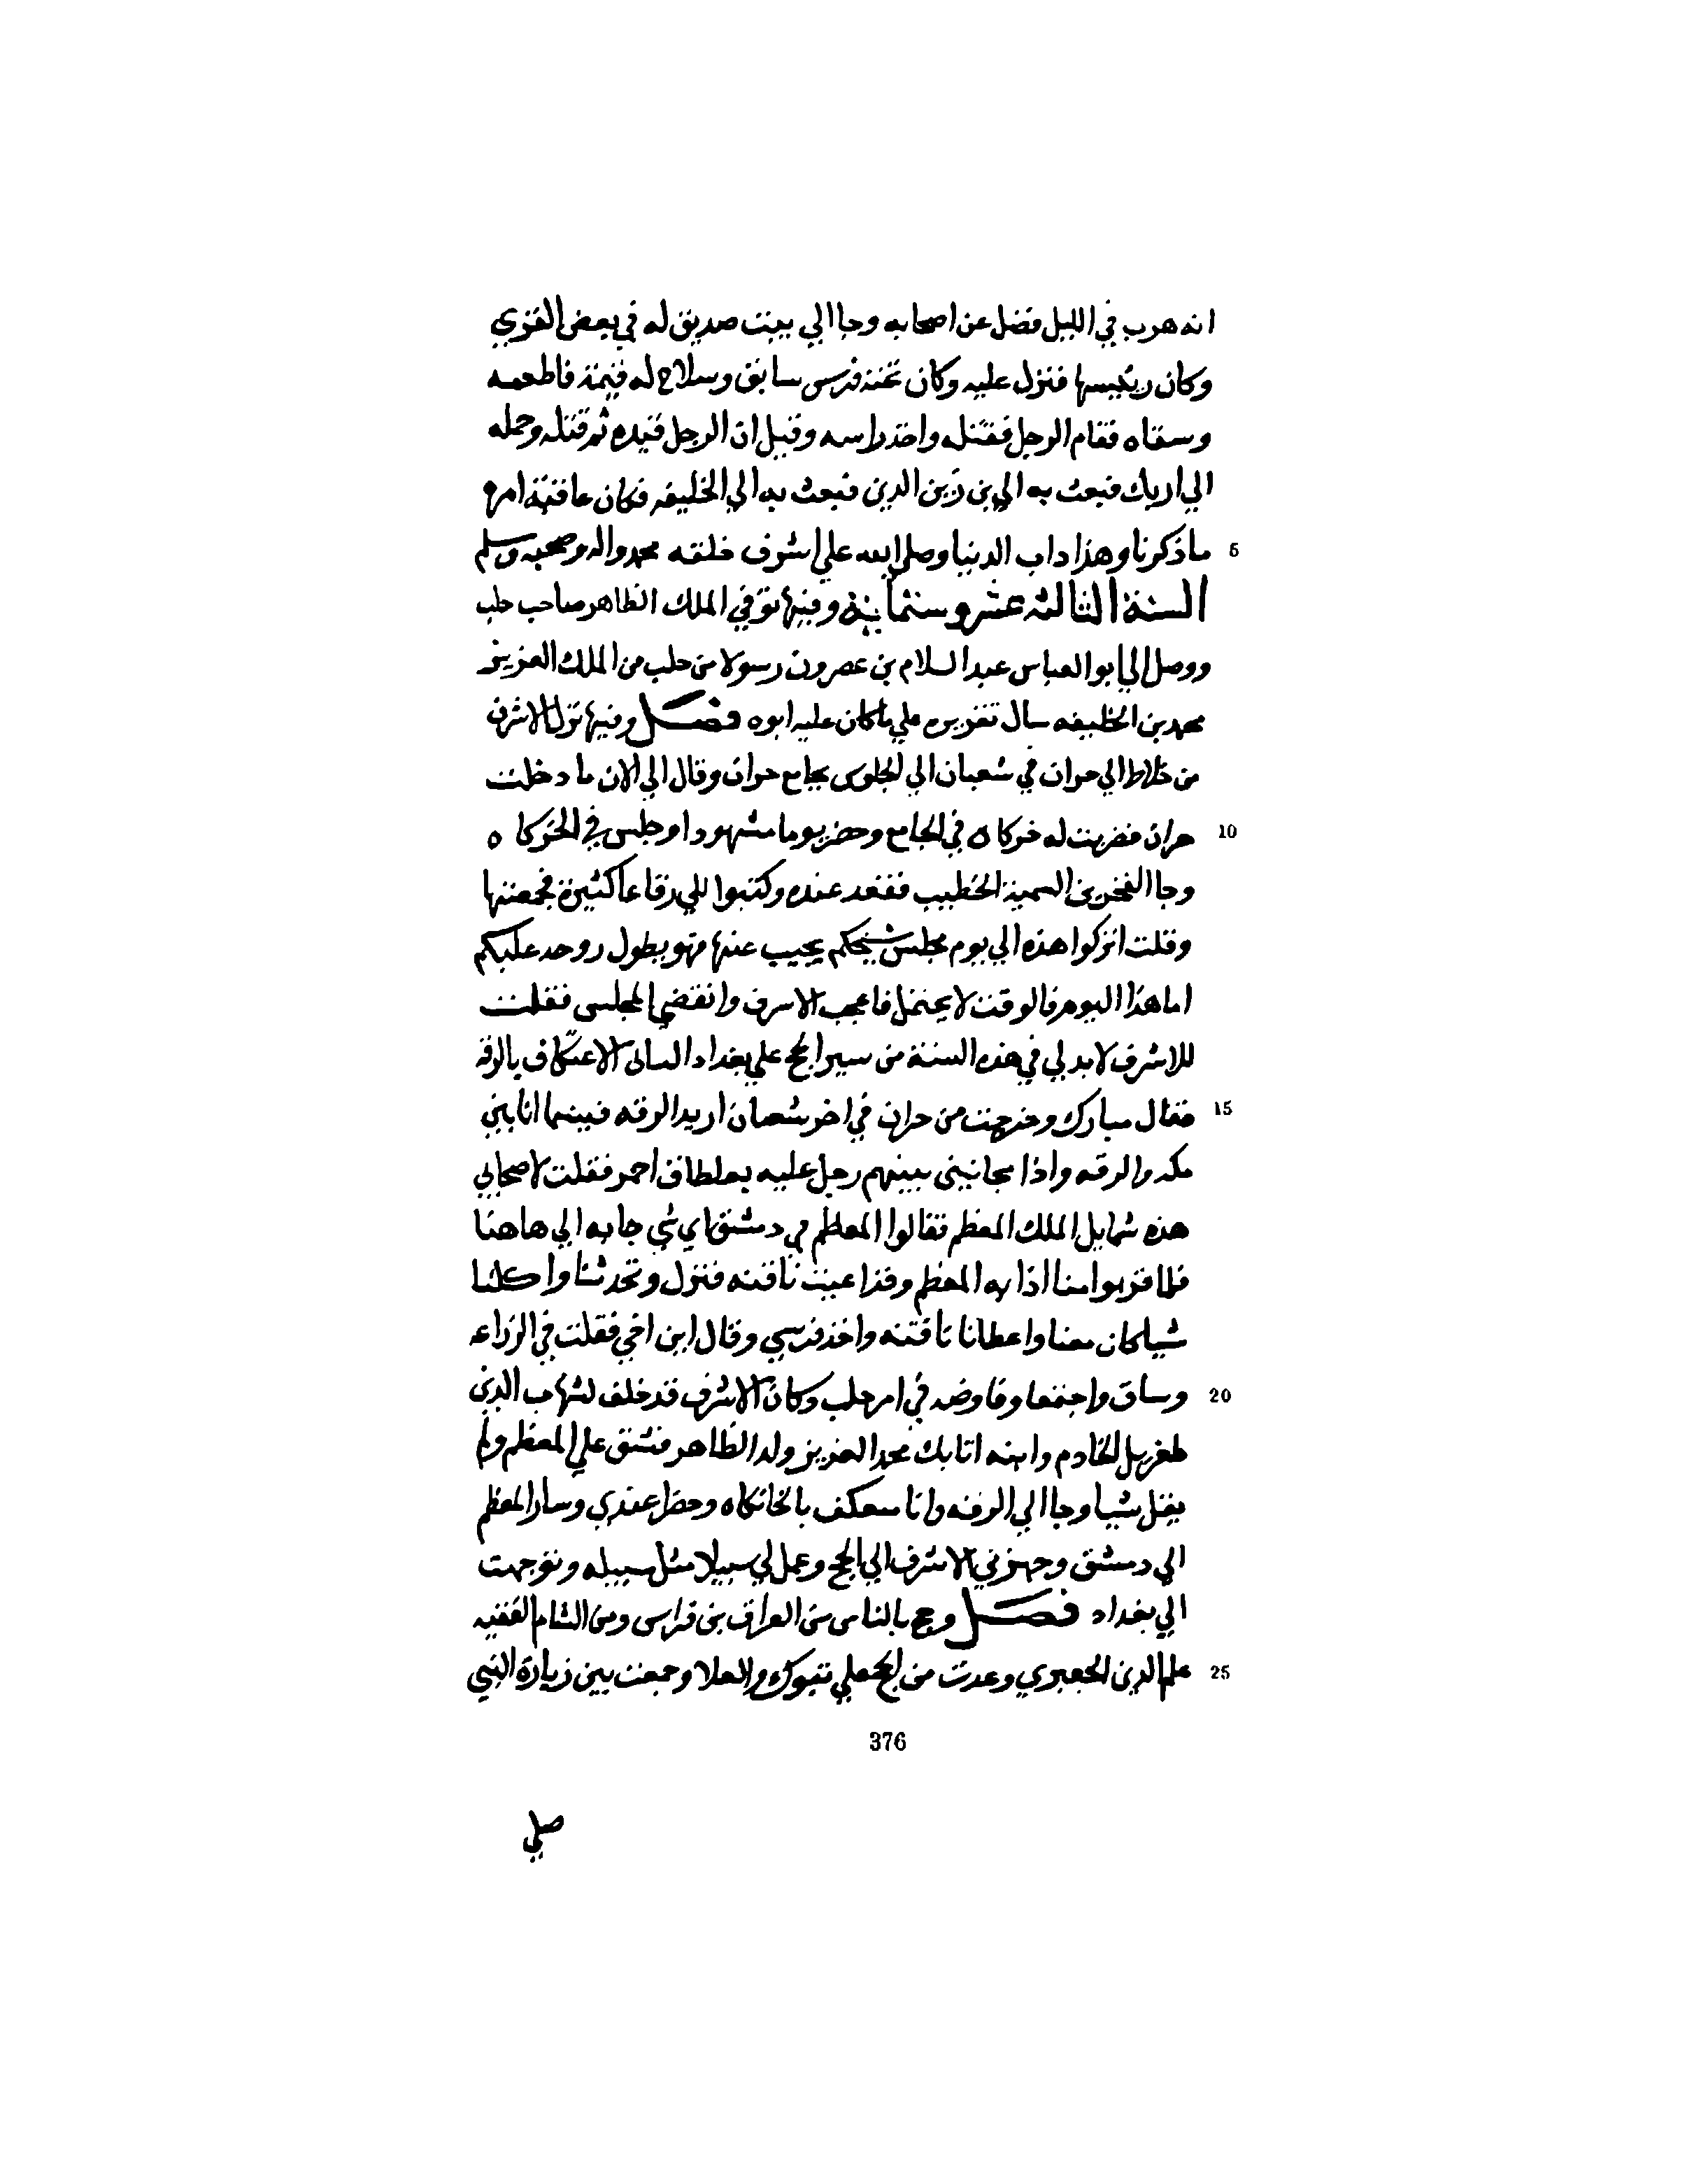 انه هرب في الليل فضل عن اصحابه وجا الي بيت صديق له في بعض القري
وكان ريئيسها فنزل عليه وكان تحته فرس سابق وسلاح له قيمة فاطعمه
وسقاه فقام الرجل فقتله واخذ راسه وقيل ان الرجل قيده ثم قتله وحمله
الي ازبك فبعث به الي بن زين الدين فبعث به الي الخليفه فكان عاقبة امره
5 ما ذكرنا وهذا داب الدنيا وصلي الله علي اشرف خلقه محمد واله وصحبه وسلم
السنة الثالثه عشر وستماية وفيها توفي الملك الظاهر صاحب حلب
ووصل الي ابو العباس عبد السلام بن عصرون رسولا من حلب من الملك العزيز
محمد بن الخليفه سال تقريره علي ما كان عليه ابوه فصل وفيها نزل الاشرف
من خلاط الي حران في شعبان الي الجلوس بجامع حران وقال الي الان ما دخلت
10 حران فضربت له خركاه في الجامع وحضر يوما مشهودا وجلس في الخركاه
وجا الفخر بن تيمية الخطيب فقعد عنده وكتبوا الي رقاعا كثيرة فجمعتها
وقلت اتركوا هذه الي يوم مجلس شيخكم يجيب عنها فهو يطول روحه عليكم
اما هذا اليوم فالوقت لا يحتمل فاعجب الاشرف وانقضي المجلس فقلت
للاشرف لا بد لي في هذه السنة من سير الحج علي بغداد الاعتكاف بالرقه
15 فقال مبارك وخرجت من حران في اخر شعبان اريد الرقه فبينما انا بين
مكه والرقه واذا بجانبين بينهم رجل عليه بغلطاق احمر فقلت لاصحابي
هذه شمايل الملك المعظم فقالوا المعظم في دمشق اي شي جا به الي هاهنا
فلما قربوا منا اذا به المعظم وقد اعيت ناقته فنزل وتحدثنا واكلنا
شيا كان معنا واعطانا ناقته واخذ فرسي وقال اين اخي فقلت في الزراعه
20 وساق واجتمعا وفاوضه في امر حلب وكان الاشرف قد خلف لشهاب الدين
طغريل الخادم وابنه اتابك محمد العزيز ولد الظاهر فشق علي المعظم ولم
يقل شيا وجا الي الرقه وانا معتكف بالخانكاه وحضر عندي وسار المعظم
الي دمشق وجهزني الاشرف الي الحج وعمل لي سبيلا مثل سبيله وتوجهت
الي بغداد فصل وحج بالناس من العراق بن فراس ومن الشام الفقيه
25 علم الدين الجعبري وعدت من الحج علي تبوك والعلا وجمعت بين زيارة النبي
376
صلي